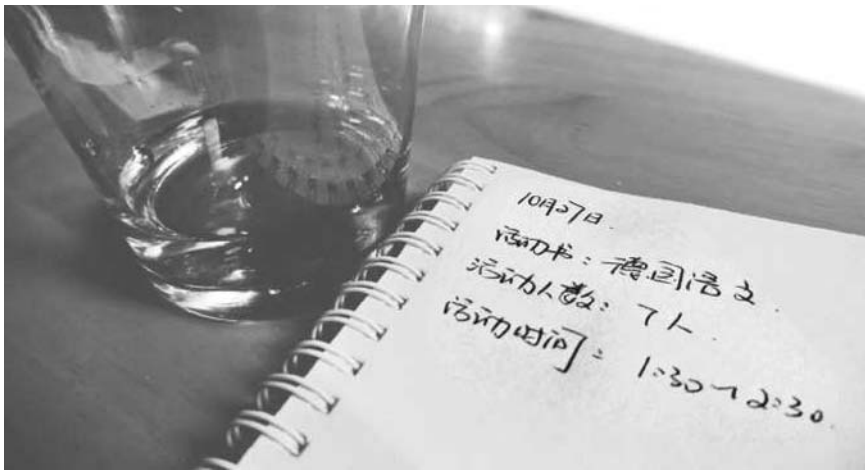 10月27日.
活动书：德国语文.
活动人数：7人.
活动时间：1:30~2:30.